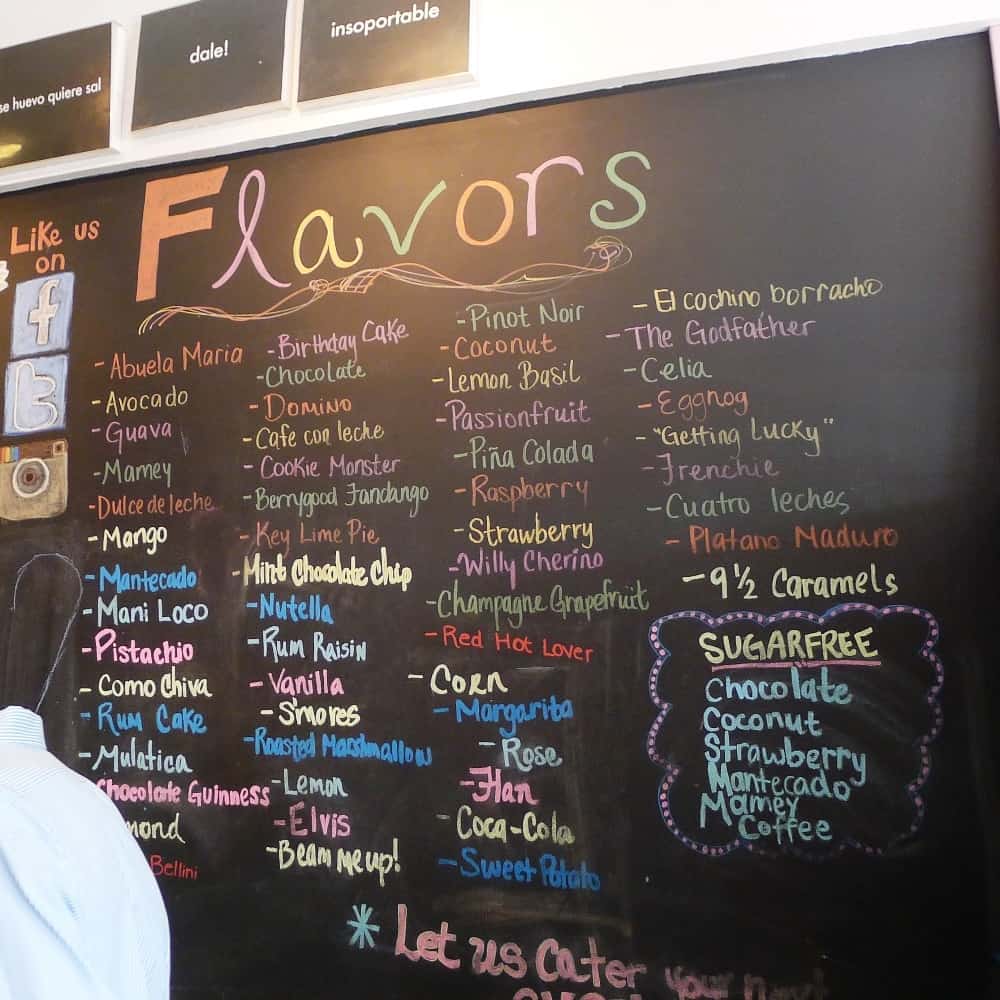 se huevo quiere sal
dale!
insoportable
Flavors
Like us
on
f
t
- Abuela Maria
- Avocado
- Guava
- Mamey
- Dulce de leche
- Mango
- Mantecado
- Mani Loco
- Pistachio
- Como Chiva
- Rum Cake
- Mulatica
Chocolate Guinness
mond
Bellini
- Birthday Cake
- Chocolate
- Domino
- Cafe con leche
- Cookie Monster
- Berrygood Fandango
- Key Lime Pie
- Mint Chocolate Chip
- Nutella
- Rum Raisin
- Vanilla
- S'mores
- Roasted Marshmallow
- Lemon
- Elvis
- Beam me up!
- Pinot Noir
- Coconut
- Lemon Basil
- Passionfruit
- Piña Colada
- Raspberry
- Strawberry
- Willy Cherino
- Champagne Grapefruit
- Red Hot Lover
- Corn
- Margarita
- Rose
- Flan
- Coca-Cola
- Sweet Potato
- El cochino borracho
- The Godfather
- Celia
- Eggnog
- "Getting Lucky"
- Frenchie
- Cuatro leches
- Platano Maduro
- 9 1/2 Caramels
SUGARFREE
Chocolate
Coconut
Strawberry
Mantecado
Mamey
Coffee
* Let us cater your next